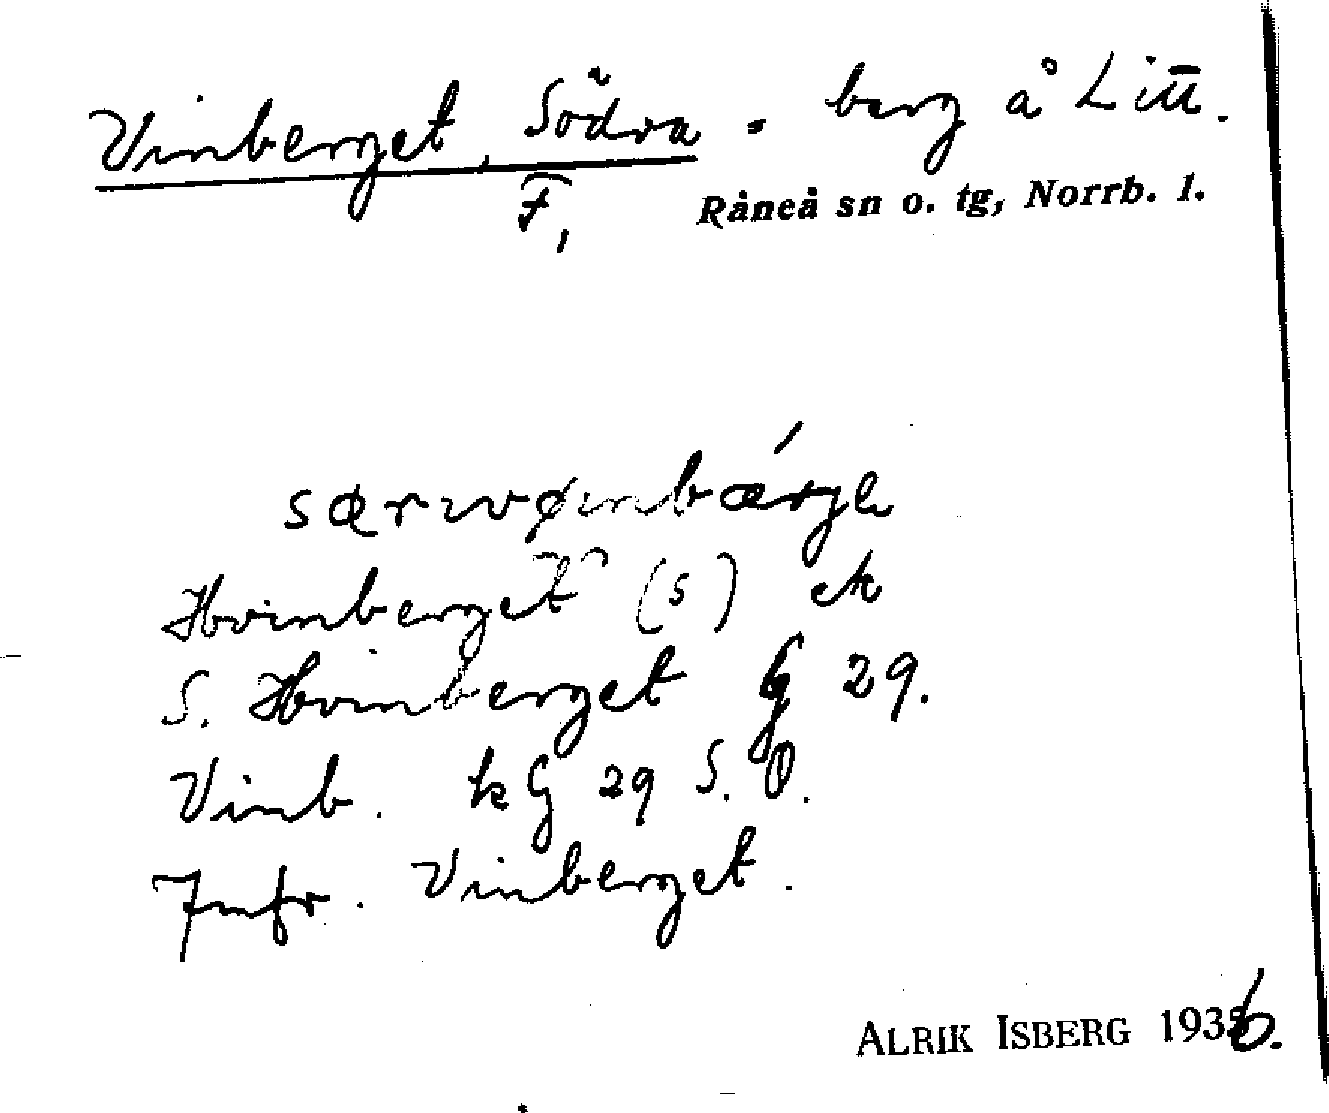 Vinberget, Södra - berg å Litt.
F,
Råneå sn o. tg, Norrb. l.
Hvinberget (s) ek
S. Hvinberget G 29.
Vinb. kG 29 S.O.
Jmfr. Vinberget.
ALRIK ISBERG 1936.